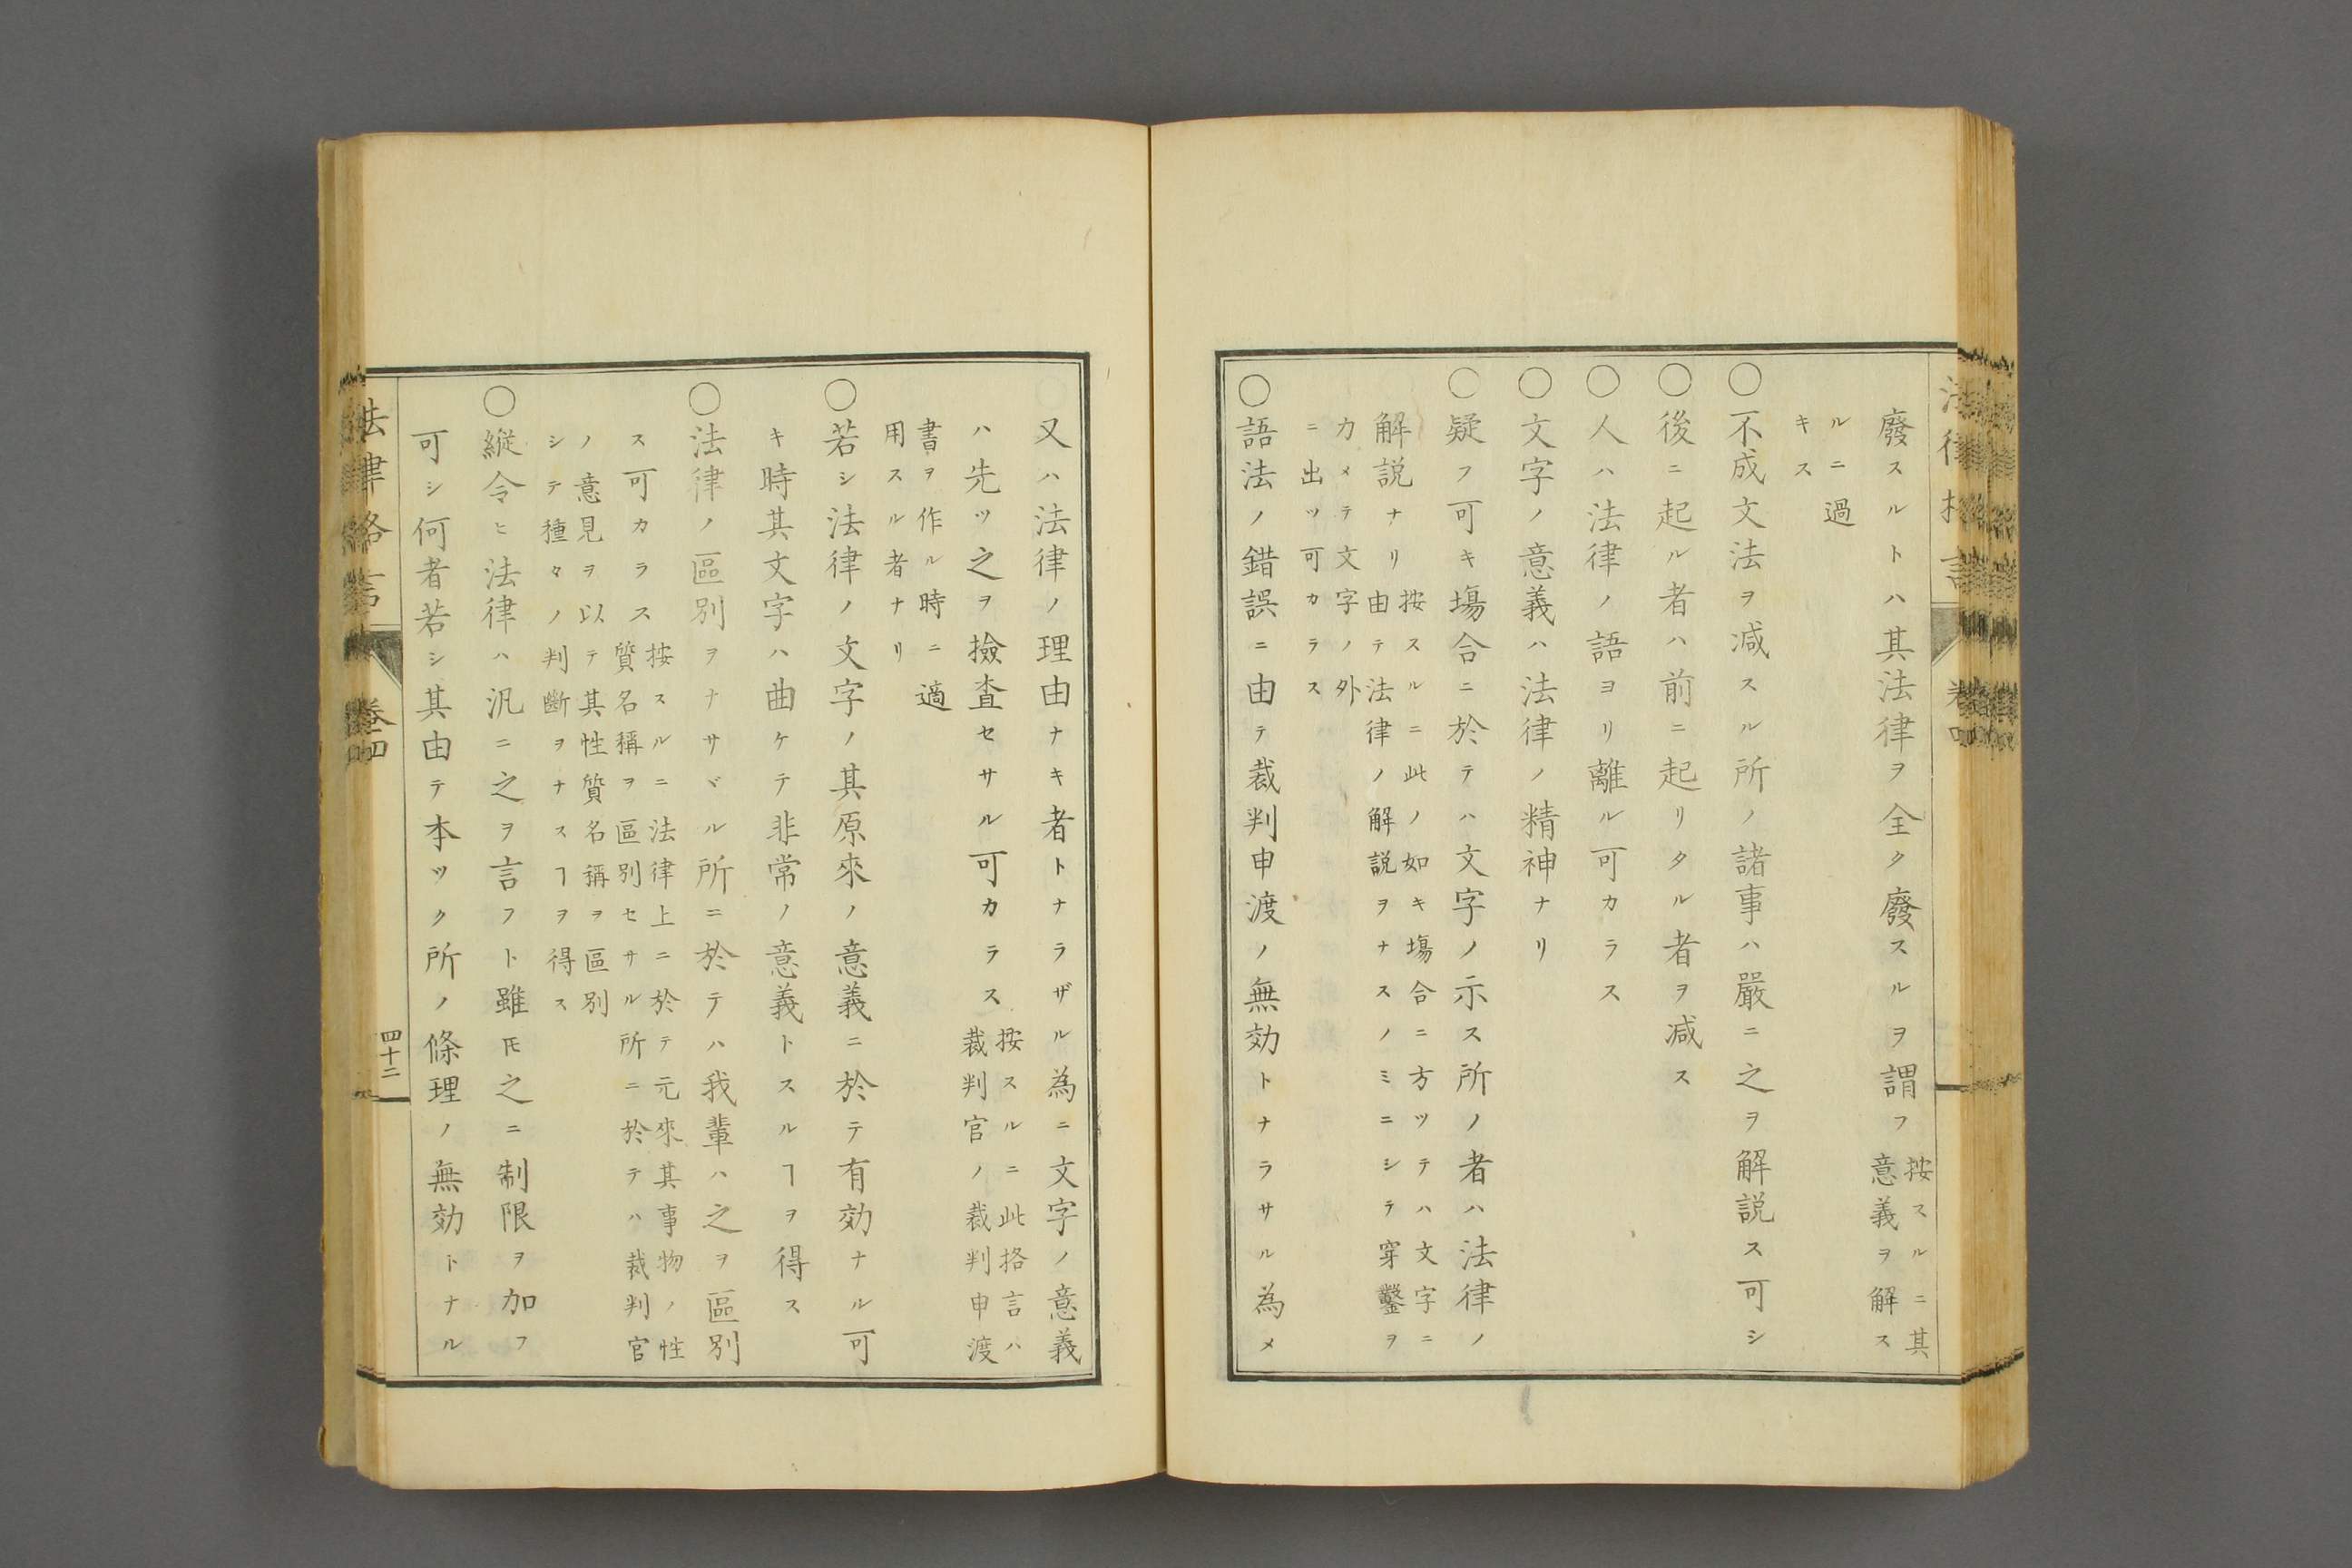 廢スルトハ其法律ヲ全ク廢スルヲ謂フ
按スルニ其
意義ヲ解ス
ルニ過
キス
○不成文法ヲ減スル所ノ諸事ハ嚴ニ之ヲ解説ス可シ
○後ニ起ル者ハ前ニ起リタル者ヲ減ス
○人ハ法律ノ語ヨリ離ル可カラス
○文字ノ意義ハ法律ノ精神ナリ
○疑フ可キ塲合ニ於テハ文字ノ示ス所ノ者ハ法律ノ
解説ナリ
按スルニ此ノ如キ塲合ニ方ツテハ文字ニ
由テ法律ノ解説ヲナスノミニシテ穿鑿ヲ
カメテ文字ノ外
ニ出ツ可カラス
○語法ノ錯誤ニ由テ裁判申渡ノ無効トナラサル為メ
又ハ法律ノ理由ナキ者トナラザル為ニ文字ノ意義
ハ先ツ之ヲ撿査セサル可カラス
按スルニ此挌言ハ
裁判官ノ裁判申渡
書ヲ作ル時ニ適
用スル者ナリ
○若シ法律ノ文字ノ其原來ノ意義ニ於テ有効ナル可
キ時其文字ハ曲ケテ非常ノ意義トスルヿヲ得ス
○法律ノ區別ヲナサヾル所ニ於テハ我輩ハ之ヲ區別
ス可カラス
按スルニ法律上ニ於テ元來其事物ノ性
質名稱ヲ區別セサル所ニ於テハ裁判官
ノ意見ヲ以テ其性質名稱ヲ區別
シテ種々ノ判斷ヲナスヿヲ得ス
○縦令ヒ法律ハ汎ニ之ヲ言フト雖𪜈之ニ制限ヲ加フ
可シ何者若シ其由テ本ツク所ノ條理ノ無効トナル
法律格言
卷四
四十二